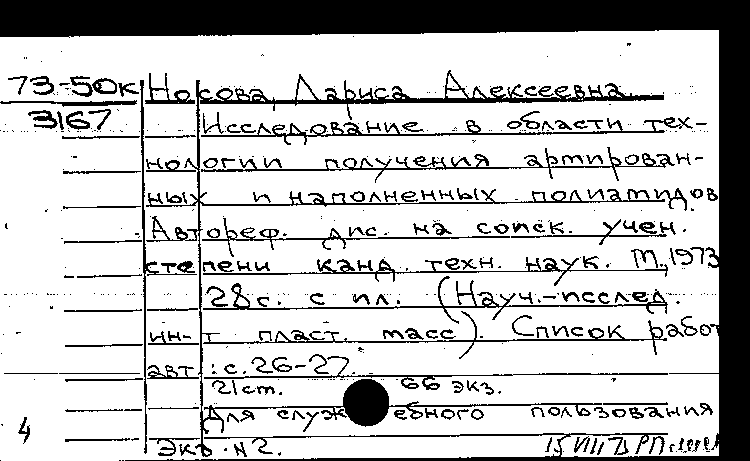 73-50к Носова, Лариса Алексеевна.
3167 Исследование в области тех-
нологии получения артирован-
ных и наполненных полиамидов
Автореф. дис. на соиск. учен.
степени канд. техн. наук. М., 1973
28 с. с ил. (Науч.-исслед.
ин-т пласт. масс). Список работ
авт.: с. 26-27.
21 ст. 66 экз.
Для служебного пользования
4 Экз. №2.